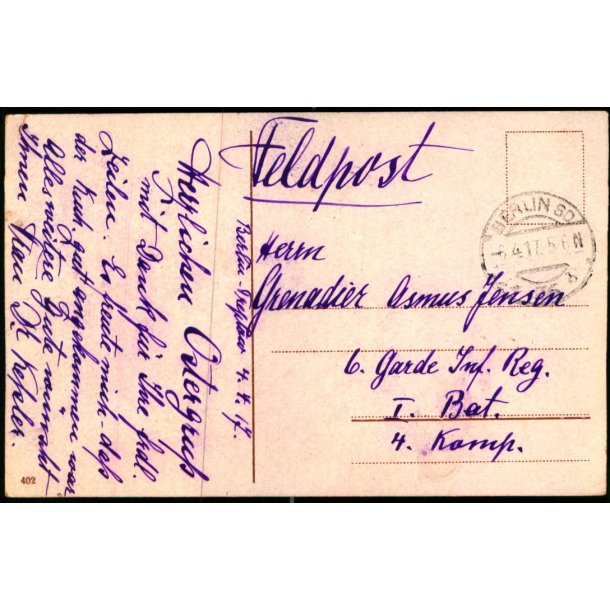 Feldpost
BERLIN SO
4.17.5-6N
Herrn
Grenadier Asmus Jensen
6. Garde Inf. Reg.
I. Bat.
4. Komp.
Berlin- 4.4.17.
Herzlichen Ostergruß
mit Dank für Ihre frdl.
Zeilen. Es freute mich daß
der Kuch. gut angekommen war
Alles weitere Gute wünscht
Ihnen Frau Dr. Kessler.
402